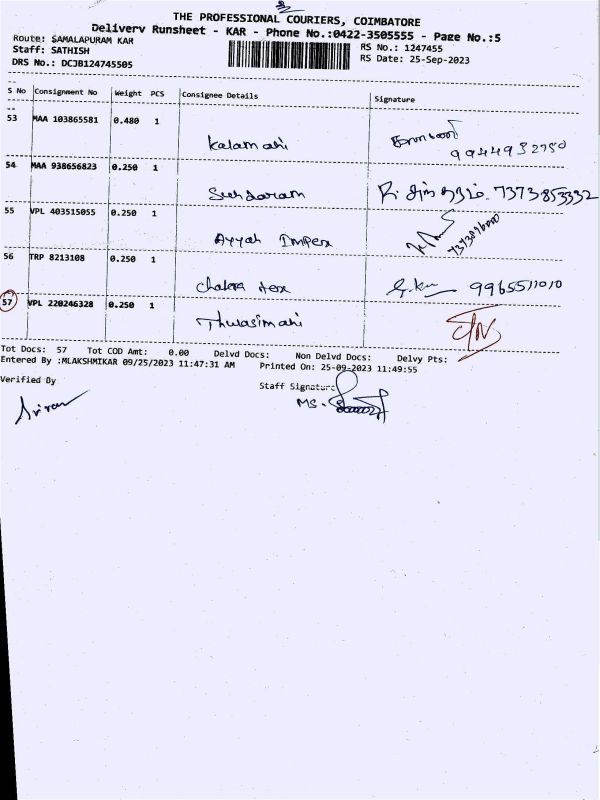 THE PROFESSIONAL COURIERS, COIMBATORE
Delivery Runsheet - KAR - Phone No.:0422-3505555 - Page No.:5
Route: SAMALAPURAM KAR
Staff: SATHISH
DRS No.: DCJB124745505
RS No.: 1247455
RS Date: 25-Sep-2023
S No Consignment No Weight PCS Consignee Details Signature
53 MAA 103865581 0.480 1
Kalamani 9944932750
54 MAA 938656823 0.250 1
Sundaram 7373853332
55 VPL 403515055 0.250 1
Ayyah Impex
56 TRP 8213108 0.250 1
Chakra tex 9965511010
57 VPL 220246328 0.250 1
Thulasimani
Tot Docs: 57 Tot COD Amt: 0.00 Delvd Docs: Non Delvd Docs: Delvy Pts:
Entered By :MLAKSHMIKAR 09/25/2023 11:47:31 AM Printed On: 25-09-2023 11:49:55
Verified By Staff Signature
MS.